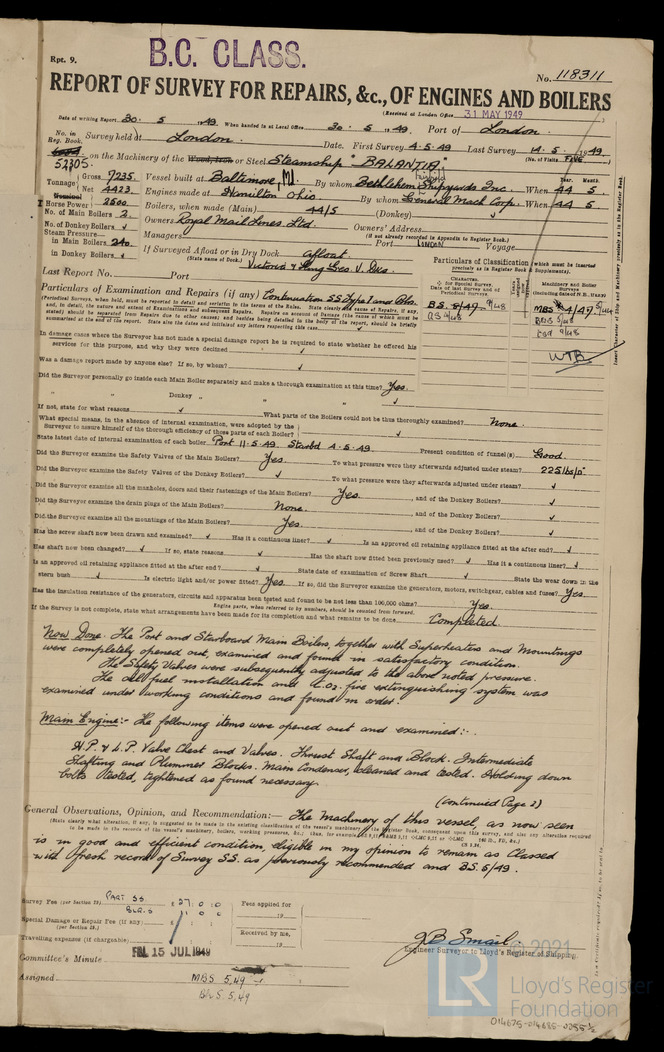 Rpt. 9.
B.C. CLASS.
No. 118311
REPORT OF SURVEY FOR REPAIRS, &c., OF ENGINES AND BOILERS
(Received at London Office 31 MAY 1949
Date of writing Report 30. 5 1949 When handed in at Local Office 30. 5. 1949. Port of London.
No. in Reg. Book. Survey held at London. Date. First Survey 4.5.49 Last Survey 14.5.1949
(No. of Visits FIVE
52305. on the Machinery of the Wood, Iron or Steel Steamship "BALANTIA"
Tonnage Gross 7235 Vessel built at Baltimore, Md By whom Bethlehem Fairfield Shipyards Inc. When Year. 44 Month. 5
Net 4423 Engines made at Hamilton Ohio By whom General Mach. Corp. When 44 5
Nominal Horse Power 2500 Boilers, when made (Main) 44/5 (Donkey) √
No. of Main Boilers 2 Owners Royal Mail Lines Ltd. Owners' Address
(if not already recorded in Appendix to Register Book.)
No. of Donkey Boilers √ Managers Port LONDON Voyage
Steam Pressure
in Main Boilers 240 If Surveyed Afloat or in Dry Dock Afloat
in Donkey Boilers √ (State name of Dock.) Victoria & King Geo V. Dks.
Last Report No. Port
Particulars of Classification (which must be inserted precisely as in Register Book & Supplements).
Particulars of Examination and Repairs (if any) Continuation SS Type 1 and Blrs.
B.S. 8/49 9/48
MBS 4/49 5/48
WTB
In damage cases where the Surveyor has not made a special damage report he is required to state whether he offered his services for this purpose, and why they were declined √
Was a damage report made by anyone else? If so, by whom? √
Did the Surveyor personally go inside each Main Boiler separately and make a thorough examination at this time? Yes.
" " Donkey " " " √
If not, state for what reasons √ What parts of the Boilers could not be thus thoroughly examined? None.
What special means, in the absence of internal examination, were adopted by the Surveyor to assure himself of the thorough efficiency of those parts of each Boiler? √
State latest date of internal examination of each boiler Port 11.5.49. Starbd 4.5.49 Present condition of funnel(s) Good.
Did the Surveyor examine the Safety Valves of the Main Boilers? Yes To what pressure were they afterwards adjusted under steam? 225 lbs/□"
Did the Surveyor examine the Safety Valves of the Donkey Boilers? √ To what pressure were they afterwards adjusted under steam? √
Did the Surveyor examine all the manholes, doors and their fastenings of the Main Boilers? Yes. and of the Donkey Boilers? √
Did the Surveyor examine the drain plugs of the Main Boilers? None. and of the Donkey Boilers? √
Did the Surveyor examine all the mountings of the Main Boilers? Yes. and of the Donkey Boilers? √
Has the screw shaft now been drawn and examined? √ Has it a continuous liner? √ Is an approved oil retaining appliance fitted at the after end? √
Has shaft now been changed? √ If so, state reasons √ Has the shaft now fitted been previously used? √ Has it a continuous liner? √
Is an approved oil retaining appliance fitted at the after end? √ State date of examination of Screw Shaft √ State the wear down in the
stern bush √ Is electric light and/or power fitted? Yes. If so, did the Surveyor examine the generators, motors, switchgear, cables and fuses? Yes.
Has the insulation resistance of the generators, circuits and apparatus been tested and found to be not less than 100,000 ohms? Yes.
Engine parts, when referred to by numbers, should be counted from forward.
If the Survey is not complete, state what arrangements have been made for its completion and what remains to be done Completed.
Now Done: The Port and Starboard Main Boilers, together with Superheaters and Mountings
were completely opened out, examined and found in satisfactory condition.
The Safety Valves were subsequently adjusted to the above noted pressure.
The oil fuel installation and C.O2. fire extinguishing system was
examined under working conditions and found in order.
Main Engine:- The following items were opened out and examined:-
H.P. & L.P. Valve Chest and Valves. Thrust Shaft and Block. Intermediate
Shafting and Plummer Blocks. Main Condenser, cleaned and tested. Holding down
bolts tested, tightened as found necessary.
(Continued Page 2)
General Observations, Opinion, and Recommendation:— The Machinery of this vessel, as now seen
is in good and efficient condition, eligible in my opinion to remain as Classed
with fresh record of Survey S.S. as previously recommended and B.S. 5/49.
Survey Fee (per Section 29) PART SS £27: 0: 0 Fees applied for
BLR.S
19
Special Damage or Repair Fee (if any) (per Section 28.)
Received by me,
Travelling expenses (if chargeable) 19
J B Smail
Engineer Surveyor to Lloyd's Register of Shipping.
Committee's Minute FRI. 15 JUL 1949
Assigned MBS 5,49
BLS. 5,49
© 2021
LR
Lloyd's Register
Foundation
014675-014685-0255½